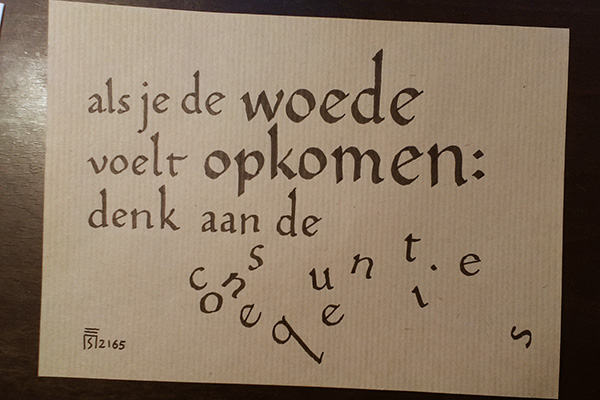 als je de woede
voelt opkomen:
denk aan de
consequenties
2165